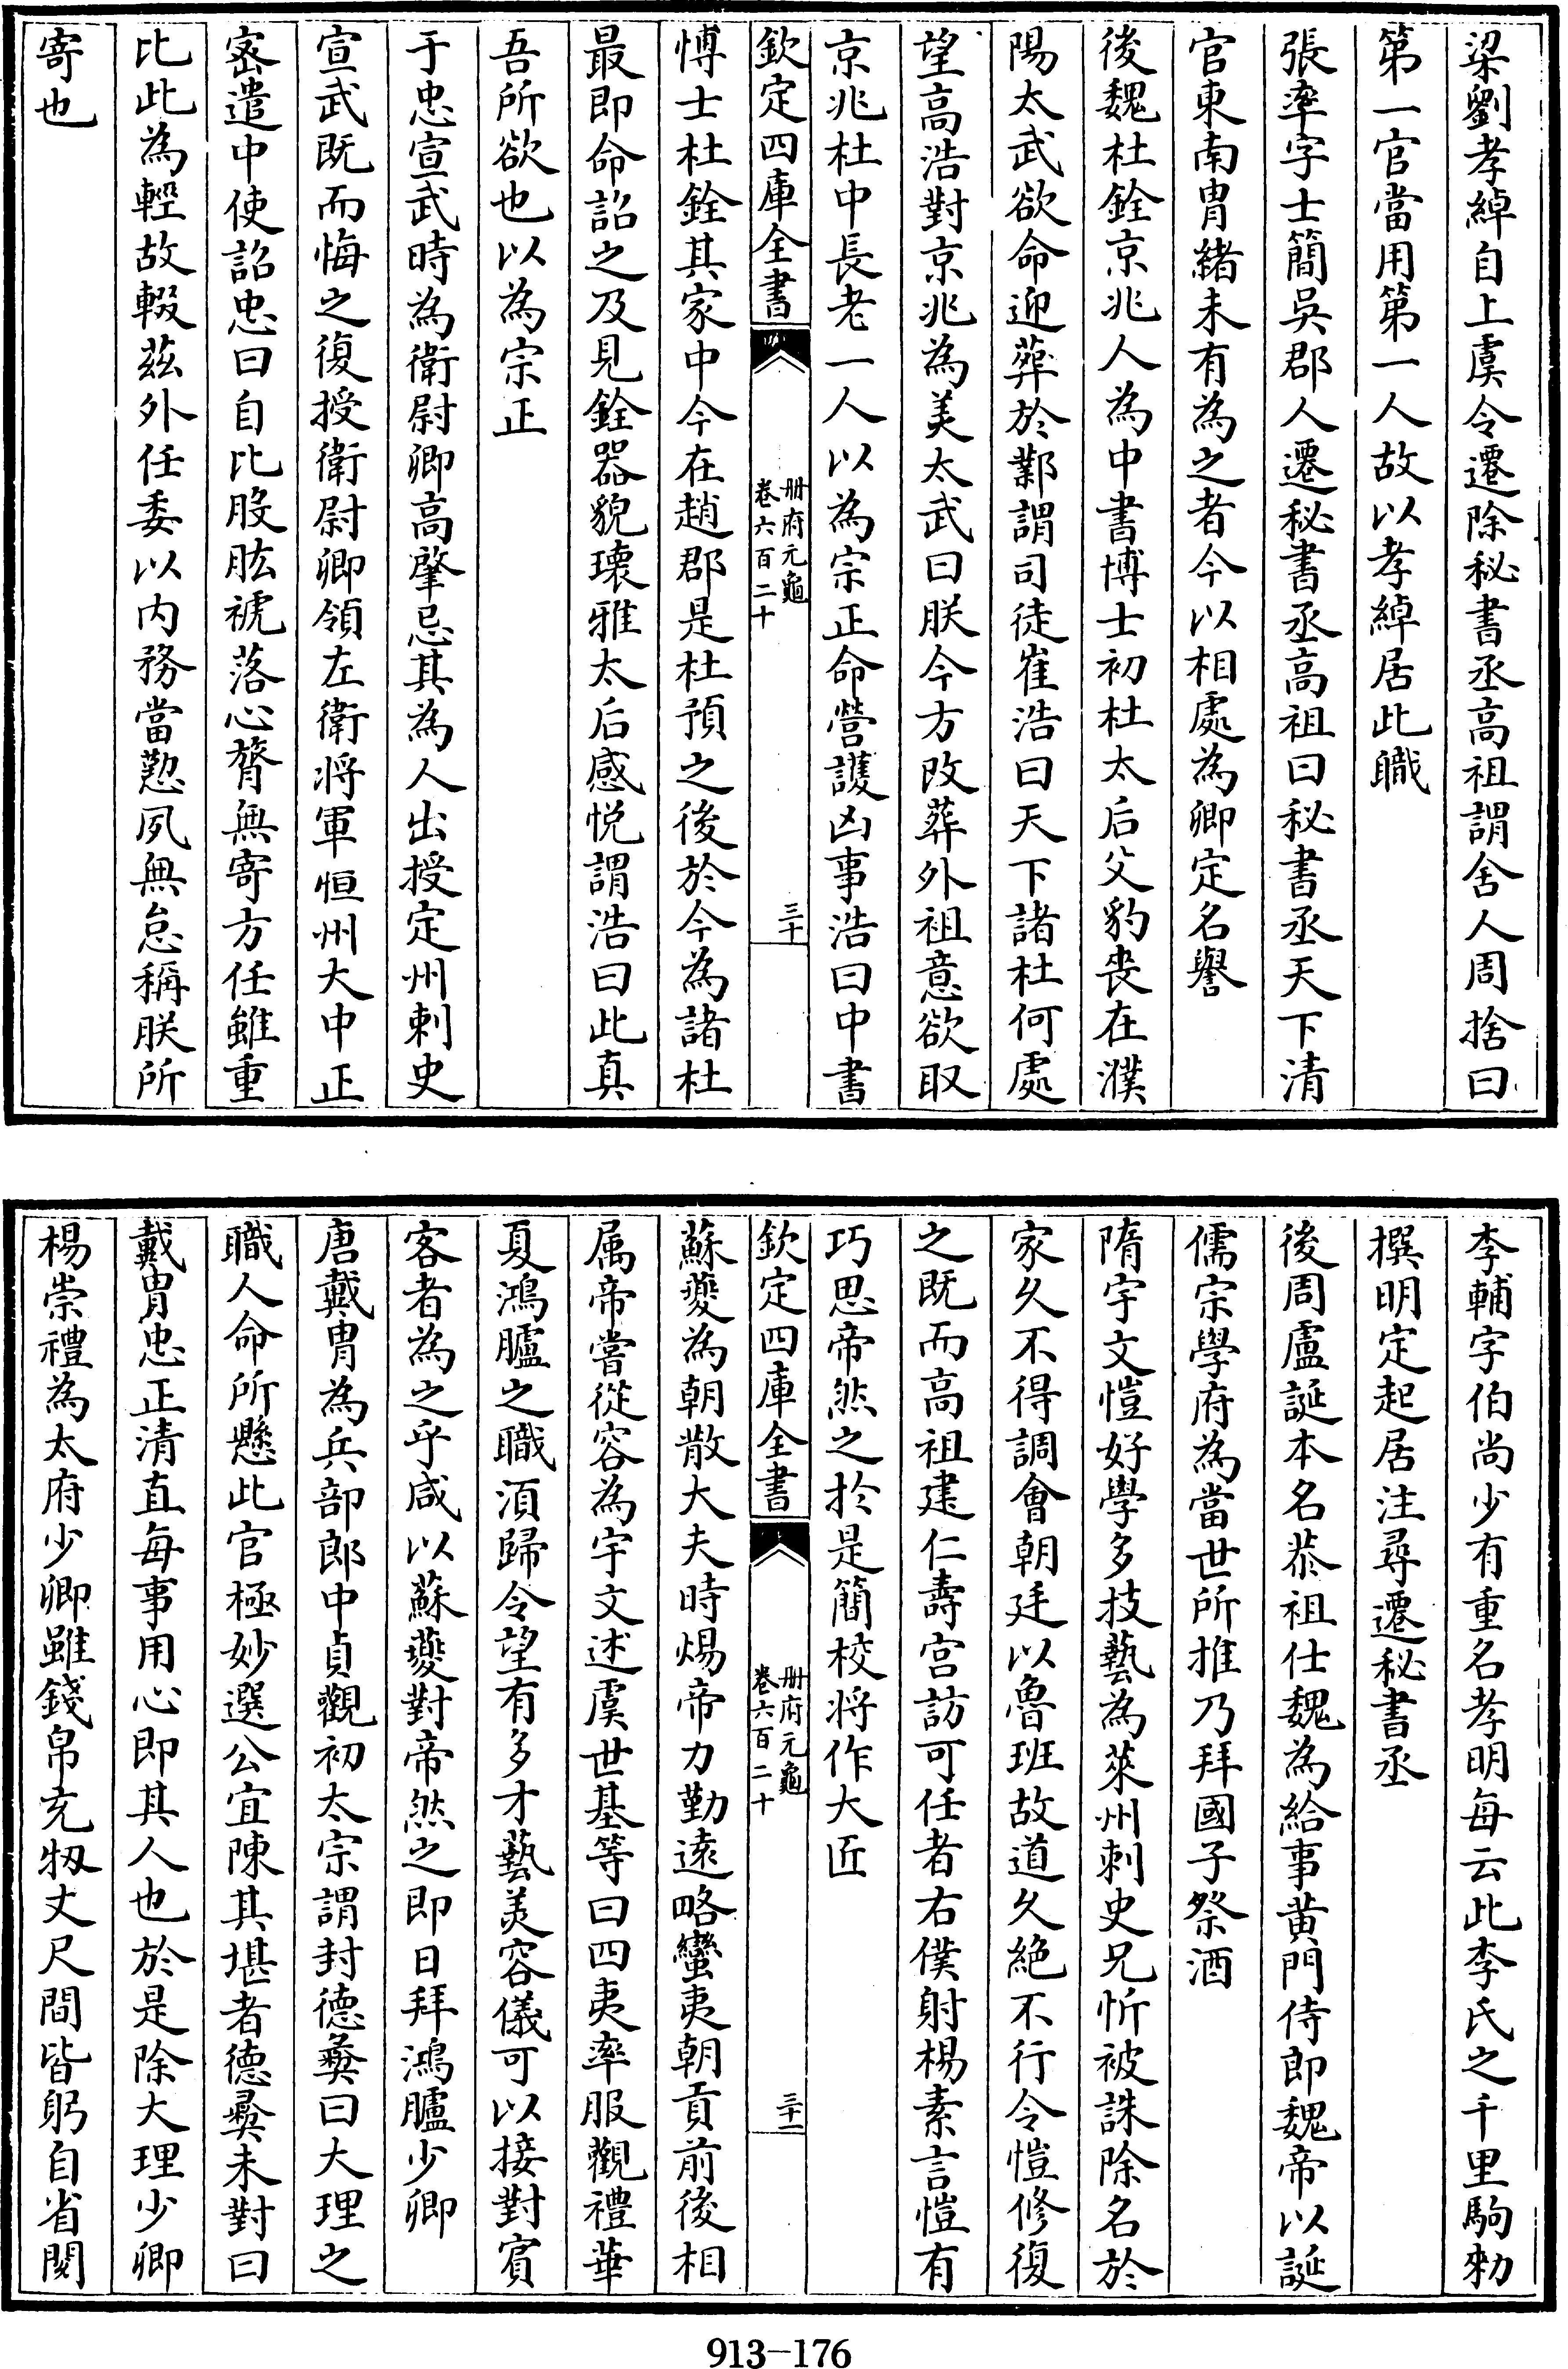 梁劉孝綽自上虞令遷除秘書丞高祖謂舍人周捨曰
第一官當用第一人故以孝綽居此職
張率字士簡吳郡人遷秘書丞高祖曰秘書丞天下清
官東南胄緒未有為之者今以相處為卿定名譽
後魏杜銓京兆人為中書博士初杜太后父豹喪在濮
陽太武欲命迎葬於鄴謂司徒崔浩曰天下諸杜何處
望高浩對京兆為美太武曰朕今方改葬外祖意欲取
京兆杜中長老一人以為宗正命營護凶事浩曰中書
欽定四庫全書
冊府元龜
卷六百二十
三十
博士杜銓其家中今在趙郡是杜預之後於今為諸杜
最即命詔之及見銓器貌瓌雅太后感悅謂浩曰此真
吾所欲也以為宗正
于忠宣武時為衛尉卿高肇忌其為人出授定州刺史
宣武既而悔之復授衛尉卿領左衛將軍恒州大中正
密遣中使詔忠曰自比股肱褫落心膂無寄方任雖重
比此為輕故輟茲外任委以內務當懃夙無怠稱朕所
寄也
李輔字伯尚少有重名孝明每云此李氏之千里駒勑
撰明定起居注尋遷秘書丞
後周盧誕本名恭祖仕魏為給事黃門侍郎魏帝以誕
儒宗學府為當世所推乃拜國子祭酒
隋宇文愷好學多技藝為萊州刺史兄忻被誅除名於
家久不得調會朝廷以魯班故道久絕不行令愷修復
之既而高祖建仁壽宮訪可任者右僕射楊素言愷有
巧思帝然之於是簡校將作大匠
欽定四庫全書
冊府元龜
卷六百二十
三十一
蘇夔為朝散大夫時煬帝力勤遠略蠻夷朝貢前後相
属帝嘗從容為宇文述虞世基等曰四夷率服觀禮華
夏鴻臚之職須歸令望有多才藝美容儀可以接對賓
客者為之乎咸以蘇夔對帝然之即日拜鴻臚少卿
唐戴胄為兵部郎中貞觀初太宗謂封德彝曰大理之
職人命所懸此官極妙選公宜陳其堪者德彝未對曰
戴胄忠正清直每事用心即其人也於是除大理少卿
楊崇禮為太府少卿雖錢帛充牣丈尺間皆躬自省閱
913-176